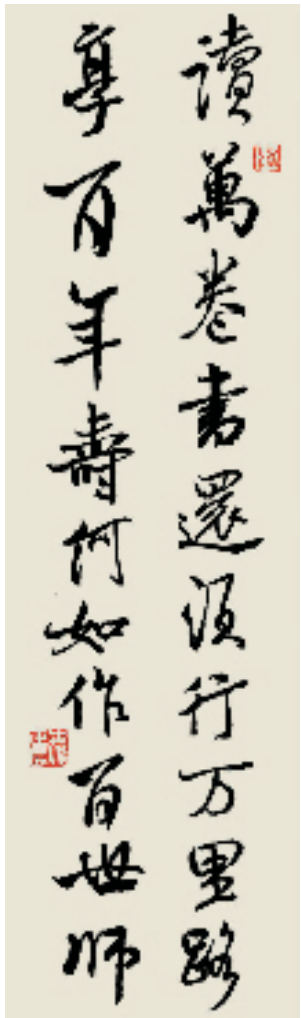 讀萬卷書還須行万里路
享百年壽何如作百世師